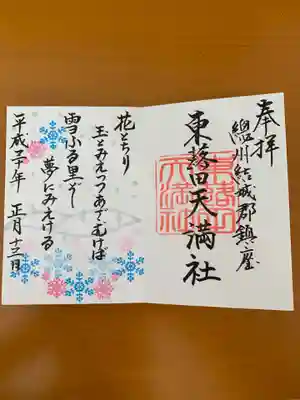 奉拝
總州結城郡鎮座
東蕗田天満社
東蕗田
天満社
花とちり
玉とみえつつあざむけば
雪ふる里ぞ
夢にみえける
平成卅年 正月